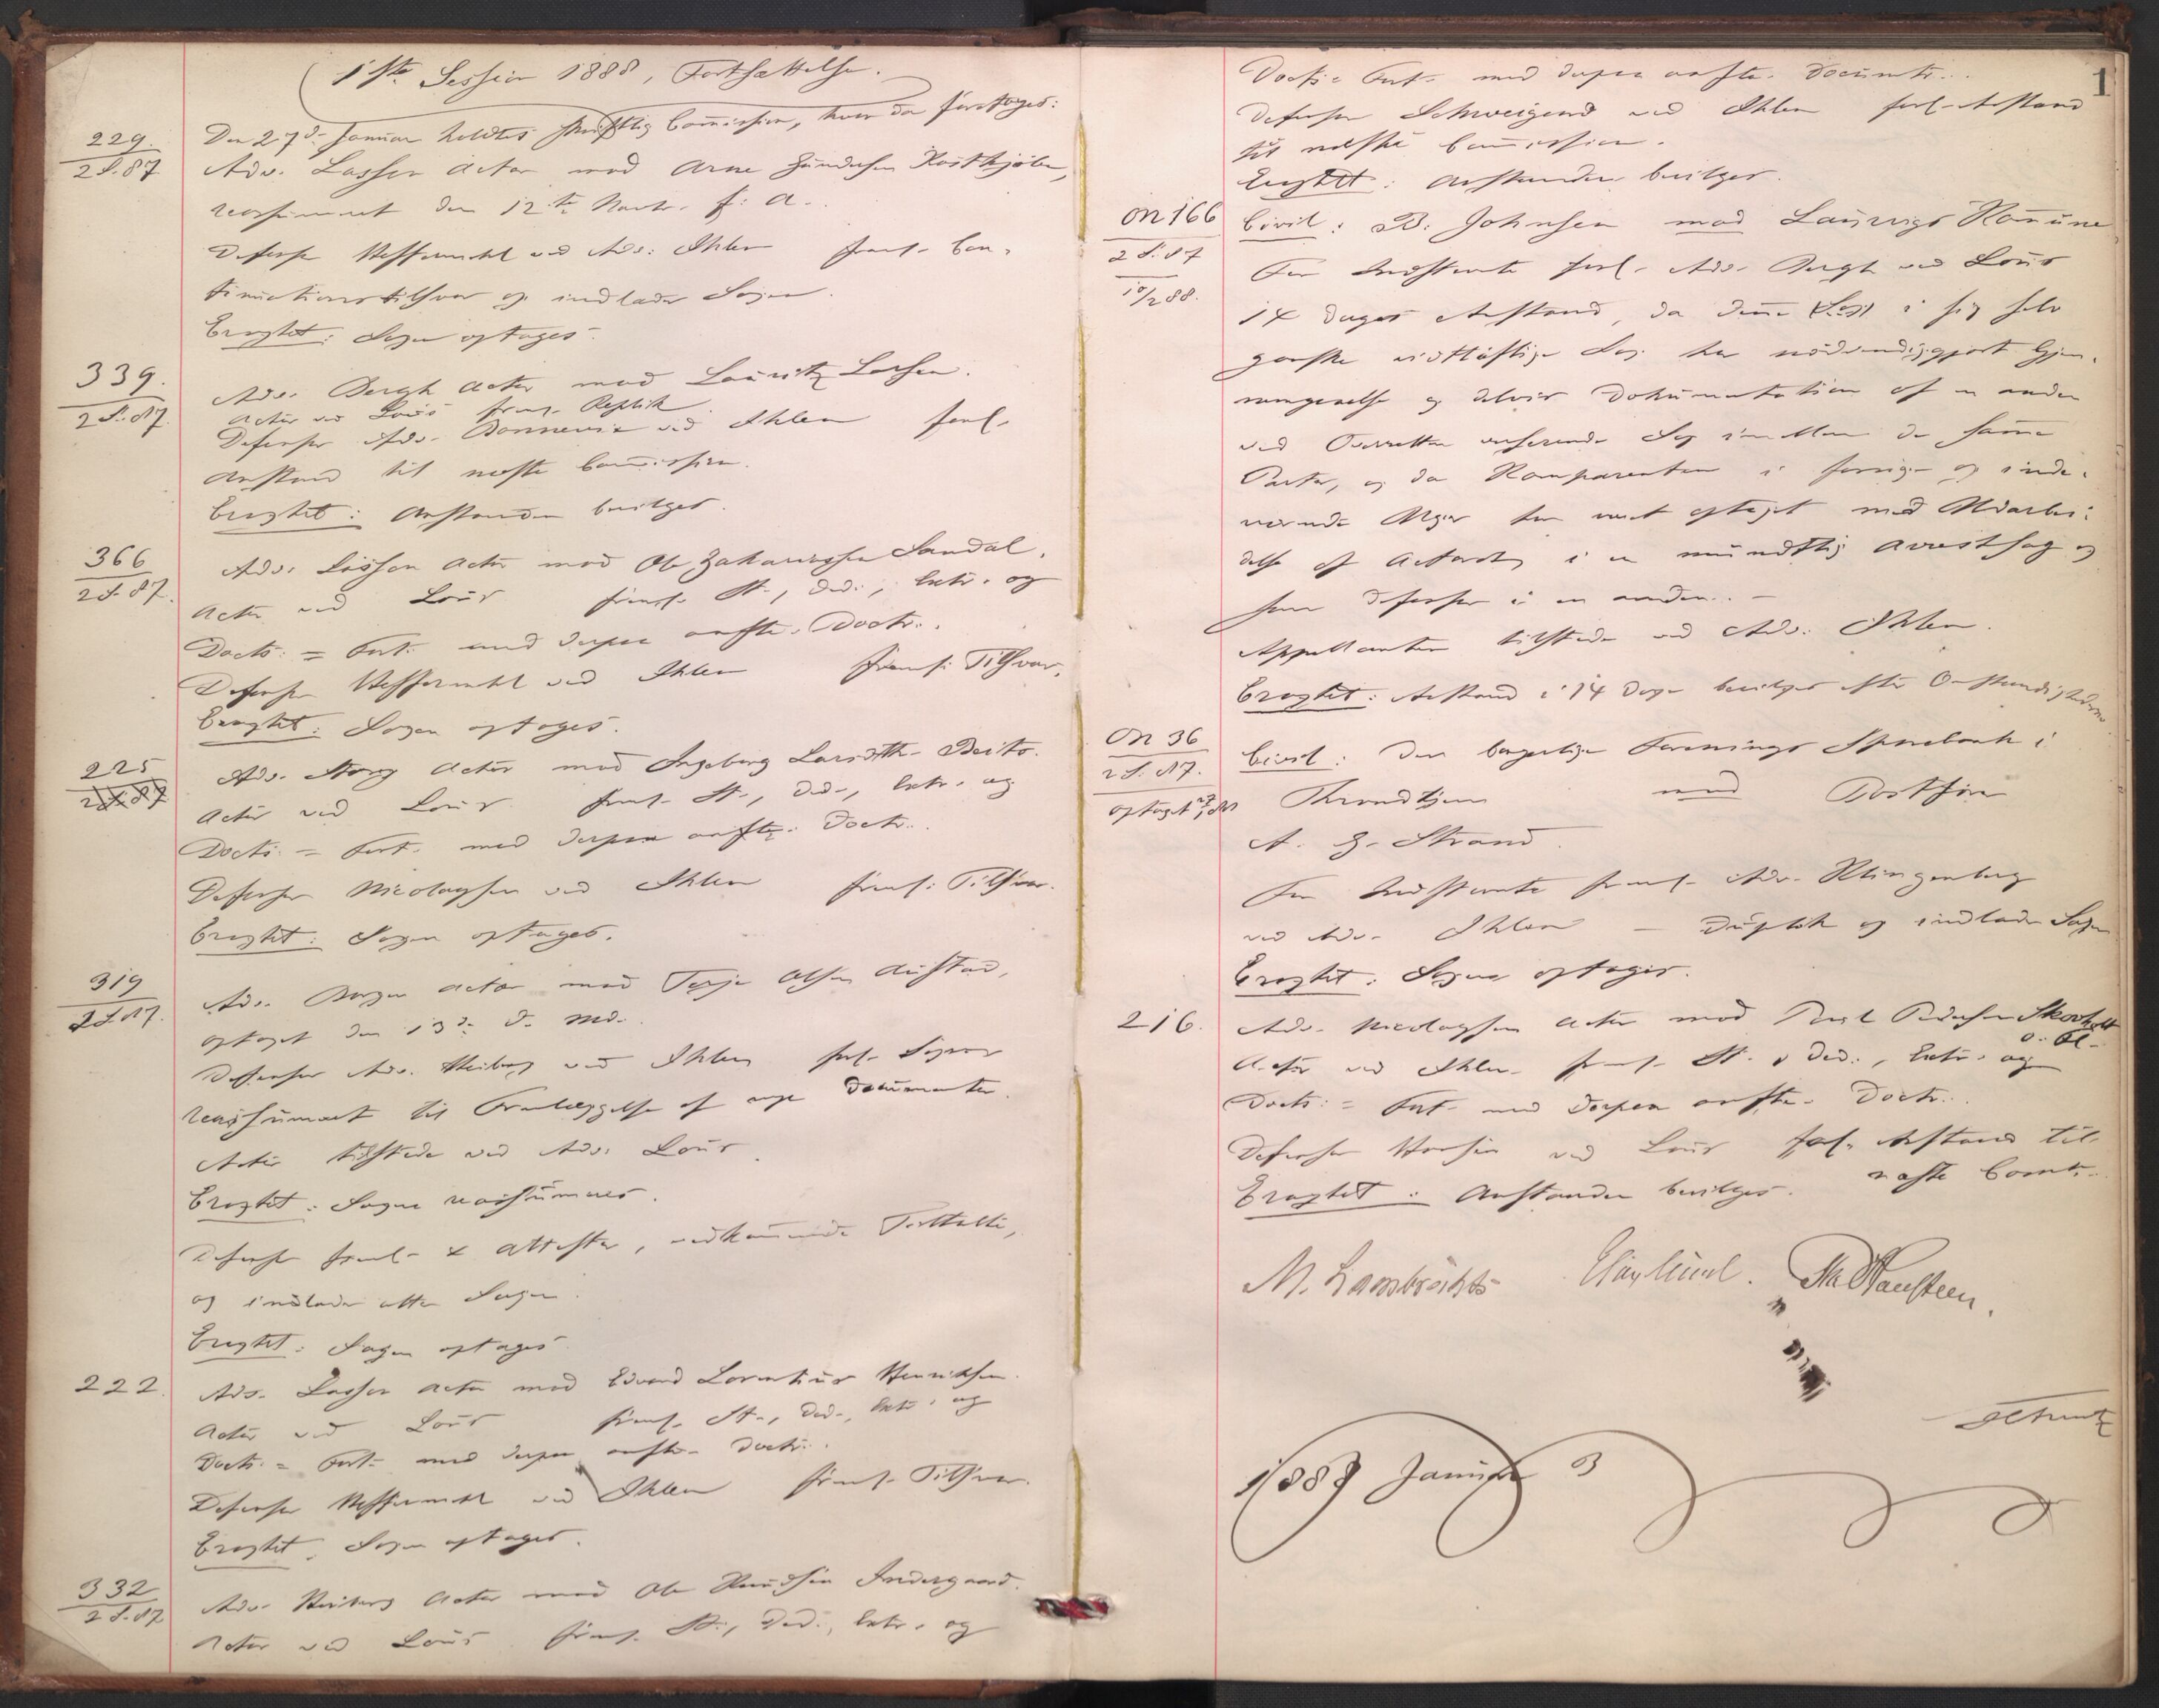 1ste Session 1888, Fortsættelse.
Den 27de Januar holdtes skriftlig Commission, hvor da foretoges:
229.
2 S. 87
Adv. Lasson Actor mod Arne Gundersen Kostkjölen,
reassumeret den 12te Novbr. f: A.
Defensor Hesselberg ved Adv: Ihlen freml. Con-
tinuationstilsvar og indlader Sagen.
Eragtet: Sagen optages.
339.
2 S. 87.
Adv. Bergh Actor mod Lauritz Larsen.
Actor ved Lous freml. Replik
Defensor Adv. Bonnevie ved Ihlen forl.
Anstand til næste Commission.
Eragtet: Anstanden bevilges.
366
2 S. 87.
Adv. Lasson Actor mod Ole Zakariassen Sandal.
Actor ved Lous freml. St., Ded., Extr. og
Docts: = Fort. med derpaa anfte. Doctr.
Defensor ved Ihlen freml: Tilsvar.
Eragtet: Sagen optages.
225
2 S. 87
Adv. Actor mod Ingeborg Larsdtr.
Actor ved Lous freml. St., Ded., Extr. og
Docts: = Fort. med derpaa anfte. Doctr.
Defensor Nicolaysen ved Ihlen freml: Tilsvar.
Eragtet: Sagen optages.
319
2 S. 87.
Adv. Actor mod Terje Olsen Austad,
optaget den 13de d. Md.
Defensor Adv. Heiberg ved Ihlen forl. Sagen
reassumeret til Fremlæggelse af nye Documenter.
Actor tilstede ved Adv: Lous.
Eragtet: Sagen reassumeres.
Defensor freml. 4 Attester, vedkommende Tiltalte,
og indlader atter Sagen.
Eragtet: Sagen optages
222.
Adv. Lasson Actor mod Edvard Lorentius Henriksen.
Actor ved Lous freml. St., Ded., Extr. og
Docts. = Fort. med derpaa anfte. Doctr.
Defensor ved Ihlen freml. Tilsvar.
Eragtet: Sagen optages.
332
2 S. 87
Adv. Heiberg Actor mod Ole Knudsen Indergaard.
Actor ved Lous freml. St., Ded., Extr. og
1
Docts = Fort. med derpaa anfte. Documtr.
Defensor Schweigaard ved Ihlen forl. Anstand
til næste Commission.
Eragtet: Anstanden bevilges.
on 166
2 S. 87
10/2 88.
Civil: B. Johnsen mod Laurvigs Kommune
For Indstevnte forl. Adv. Bergh ved Lous
14 dages Anstand, da denne i sig selv
ganske vidtløftige Sag har nødvendiggjort Gjen-
nemgaaelse og delvis Dokumentation af en anden
ved Overretten verserende Sag imellem de samme
Parter, og da Komparenten i forrige og inde-
værende Uger har været optaget med Udarbei-
delse af i en mundtlig Arrestsag og
som Defensor i en anden. –
Appellanten tilstede ved Adv: Ihlen.
Eragtet: Anstand i 14 Dage bevilges efter Omstændighederne
on 36
2 S. 87.
optaget 27/1 88
Civil: Den borgerlige Forenings Sparebank i
Throndhjem mod Postfører
A. Z. Strand.
For Indstevnte freml. Adv. Klingenberg
ved Adv. Ihlen – Duplik og indlader Sagen
Eragtet: Sagen optages.
216.
Adv. Nicolaysen Actor mod Pedersen Skovholt
o: Fl.
Actor ved Ihlen freml. St., Ded:, Extr. og
Docts: = Fort. med derpaa anfte. Doctr.
Defensor ved Lous forl. Anstand til
næste Comm.
Eragtet: Anstanden bevilges.
M. Lambrechts
1888 Januar 3